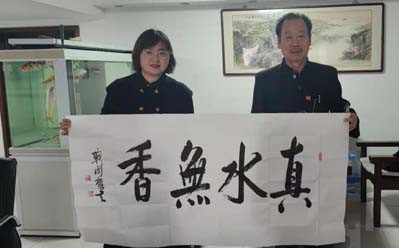 真水無香